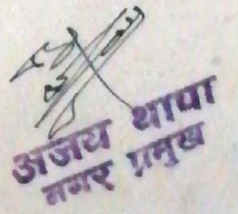 अजय थापा
नगर प्रमुख